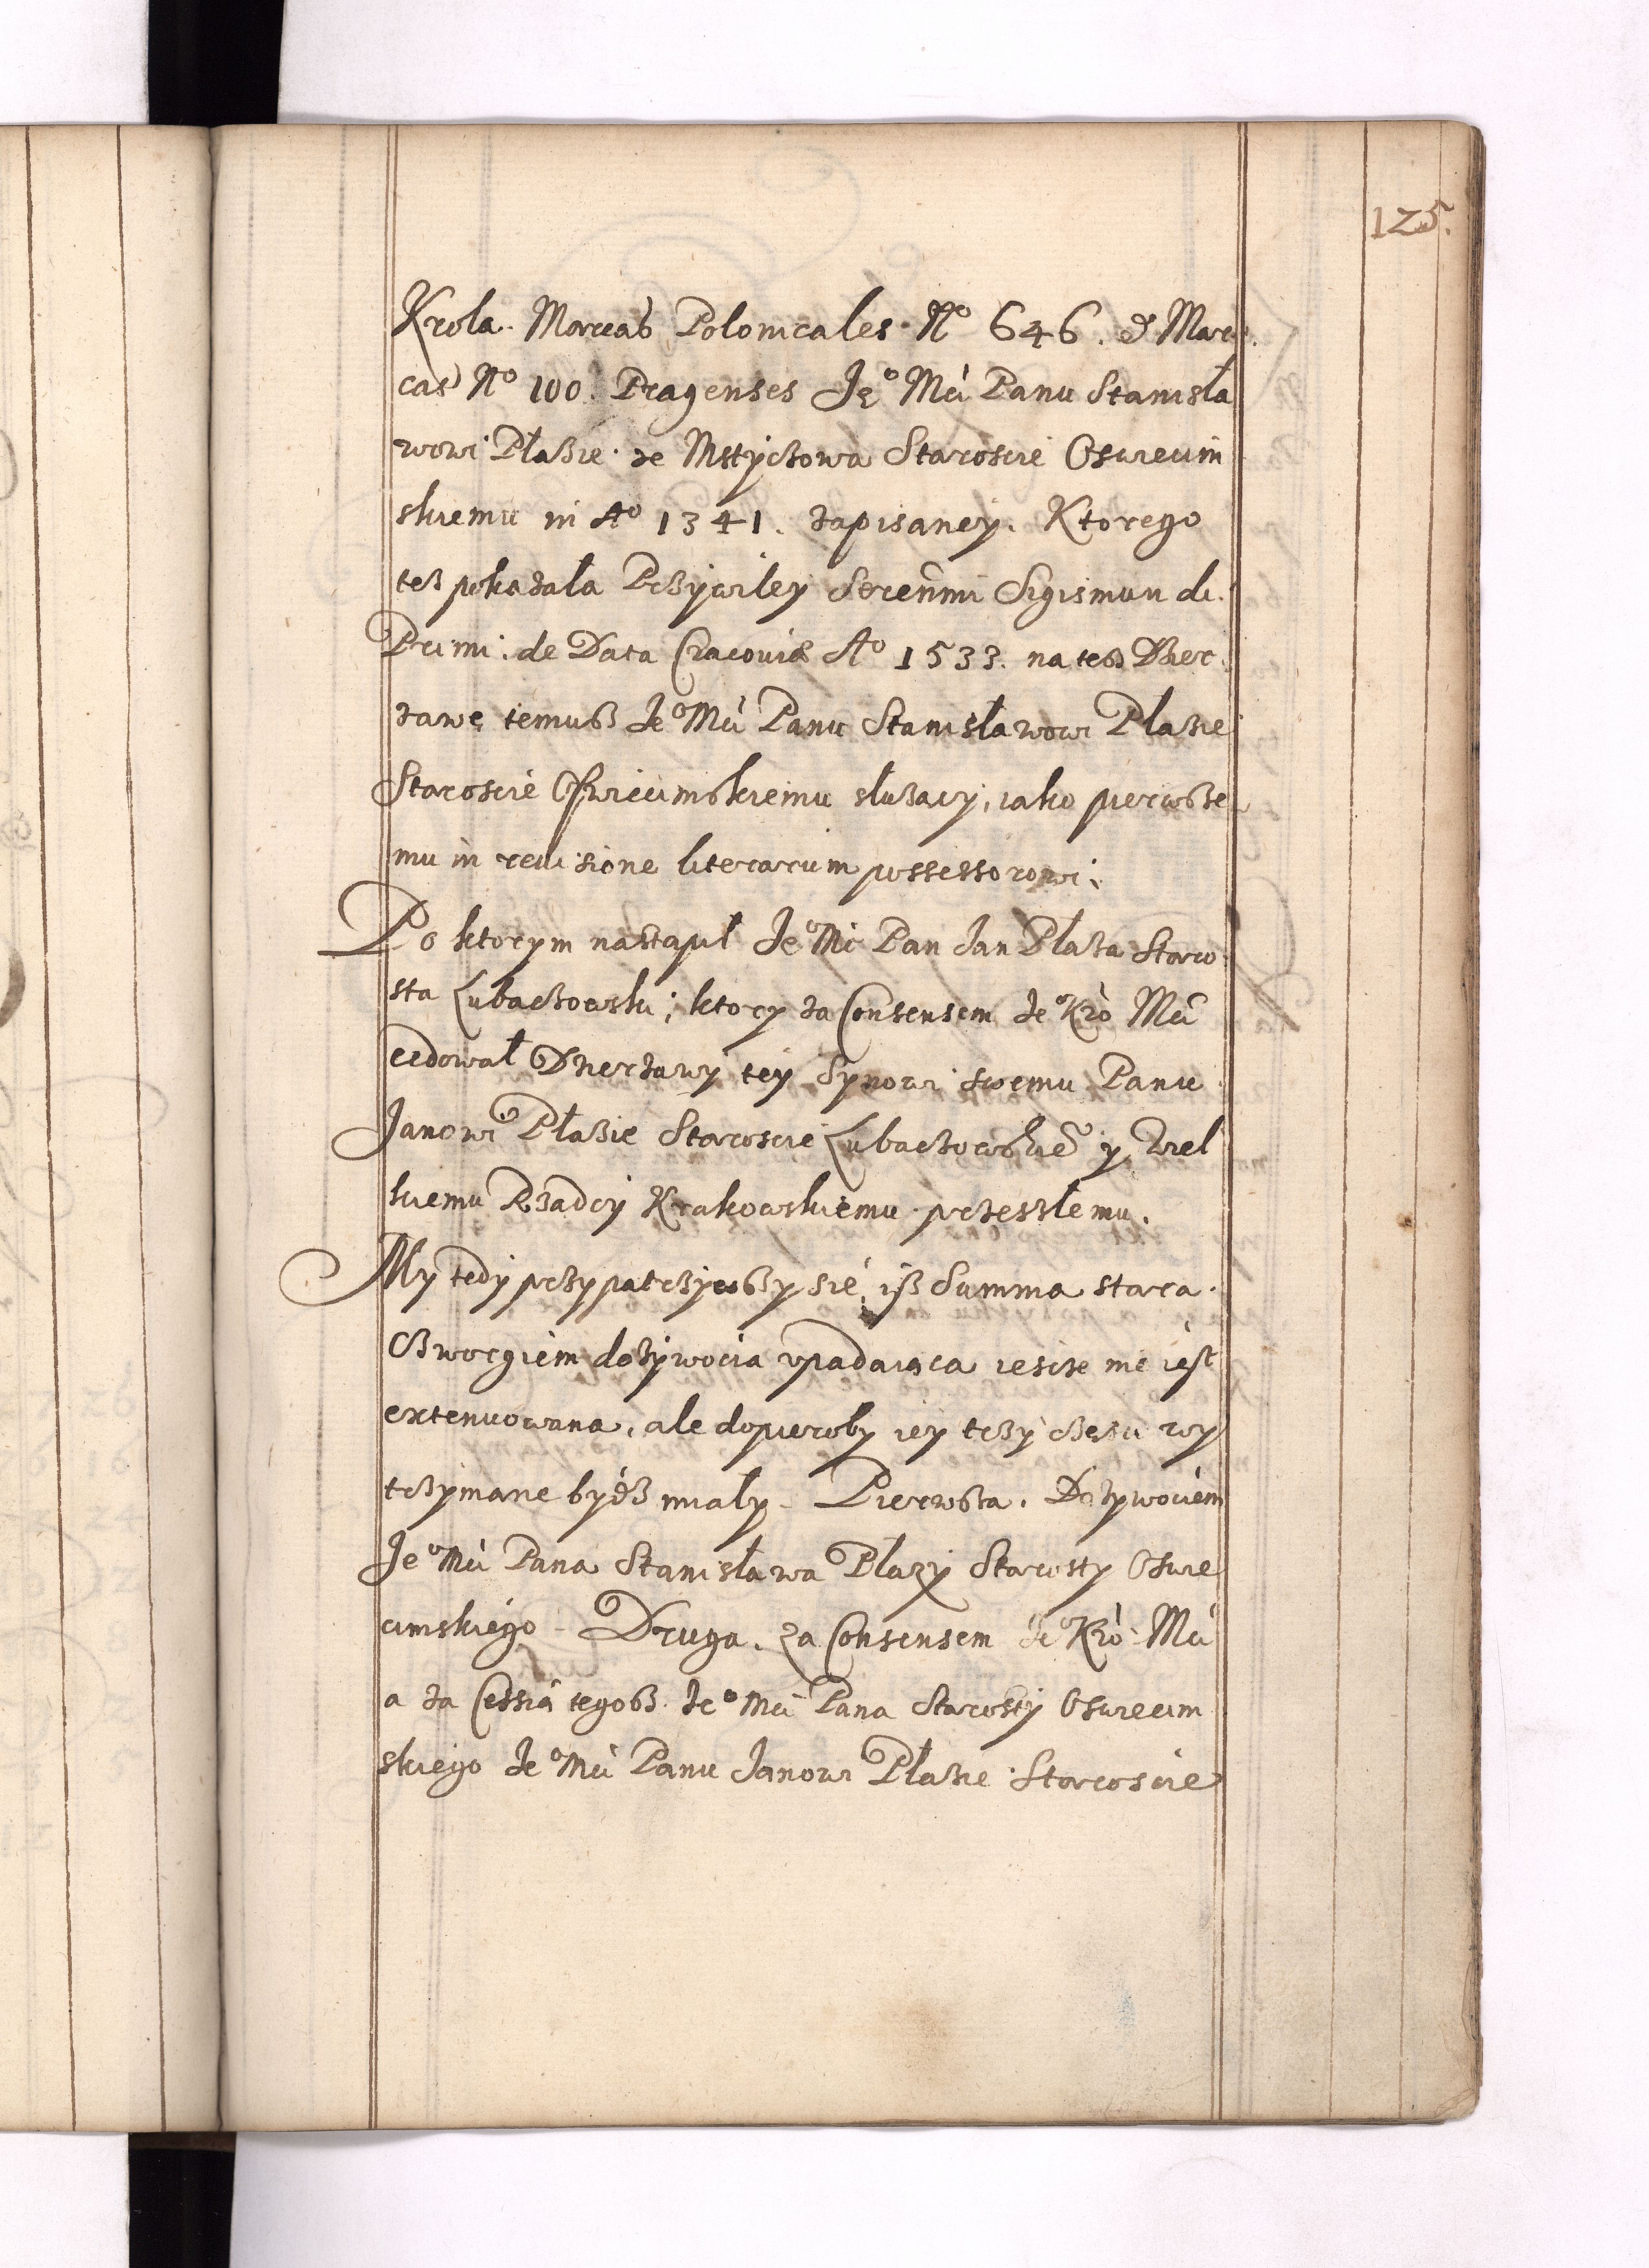 125.
Krola. Marcas Polonicales. No 646. & Mar
cas No 100. Pragenses Jeo Mci Panu Stanisła
wowi Płaszie de Mstyczowa Staroscie Oswiecim
skiemu in Ao 1341. zapisaney. Ktorego
tesz pokazała Przywiley Serenmi Sigismundi
Primi. de Data Cracoviæ Ao 1533. na tesz Dzier
zawę temusz Jeo Mci Panu Stanisławowi Płazie
Staroscie Oswiecimskiemu słuzacy, iako pierwsze
mu in reuisione literarum possessorowi.
Po ktorym nastąpił Jeo Mc Pan Jan Płaza Staro
sta Lubaczowski; ktory za Consensem Jeo Kro Mci
cedował Dzierzawy tey Synowi swemu Panu
Janowi Płazie Staroscie Lubaczowskie y Wiel
kiemu Rządcy Krakowskiemu przeszłemu.
My tedy przypatrzywszy sie, isz Summa stara.
Czworgiem dozywocia vpadaiąca iescze nie iest
extenuowana, ale dopieroby iey trzy częsci wy
trzymane bydz miały. Pierwsza. Dozywociem
Jeo Mci Pana Stanisława Płazy Starosty Oswie
cimskiego. Druga. za Consensem Jeo Kro Mci
a za Cessią tegosz Jeo Mci Pana Starosty Oswiecim
skiego Jeo Mci Panu Janowi Płazie Staroscie